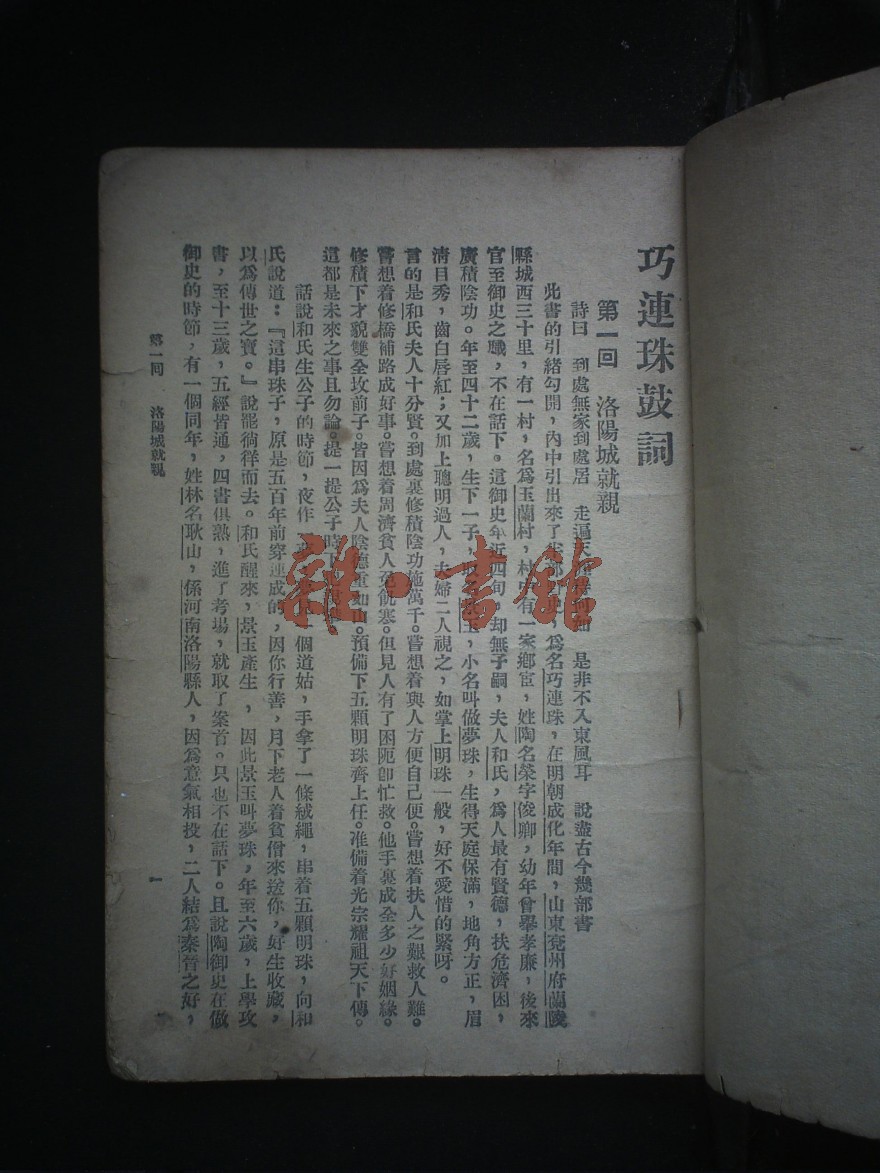 巧連珠鼓詞
第一回　洛陽城就親
詩曰　到處無家到處居　走遍天　是非不入東風耳　說盡古今幾部書
此書的引緒勾開，內中引出來了　，爲名巧連珠，在明朝成化年間，山東兗州府蘭陵
縣城西三十里，有一村，名爲玉蘭村，村中有一家鄉宦，姓陶名榮字俊卿，幼年曾舉孝廉，後來
官至御史之職，不在話下。這御史年近四旬，却無子嗣，夫人和氏，爲人最有賢德，扶危濟困，
廣積陰功。年至四十二歲，生下一子，玉，小名叫做夢珠，生得天庭保滿，地角方正，眉
淸目秀，齒白唇紅；又加上聰明過人，夫婦二人視之，如掌上明珠一般，好不愛惜的緊呀。
言的是和氏夫人十分賢。到處裏修積陰功施萬千。嘗想着與人方便自己便。嘗想着扶人之艱救人難。
嘗想着修橋補路成好事。嘗想着周濟貧人免飢寒。但見人有了困阨卽忙救。他手裏成全多少好姻緣。
修積下才貌雙全坟前子。皆因爲夫人陰德重如山。預備下五顆明珠齊上任。准備着光宗耀祖天下傳。
這都是未來之事且勿論。提一提公子時下
話說和氏生公子的時節，夜作　個道姑，手拿了一條絨繩，串着五顆明珠，向和
氏說道：『這串珠子，原是五百年前穿連成的，因你行善，月下老人着貧僧來送你，好生收藏，
以爲傳世之寶。』說罷徜徉而去。和氏醒來，景玉產生，因此景玉叫夢珠，年至六歲，上學攻
書，至十三歲，五經皆通，四書俱熟，進了考場，就取了案首。只也不在話下。且說陶御史在做
御史的時節，有一個同年，姓林名耿山，係河南洛陽縣人，因爲意氣相投，二人結爲秦晉之好，
第一回　洛陽城就親
一
雜·書館